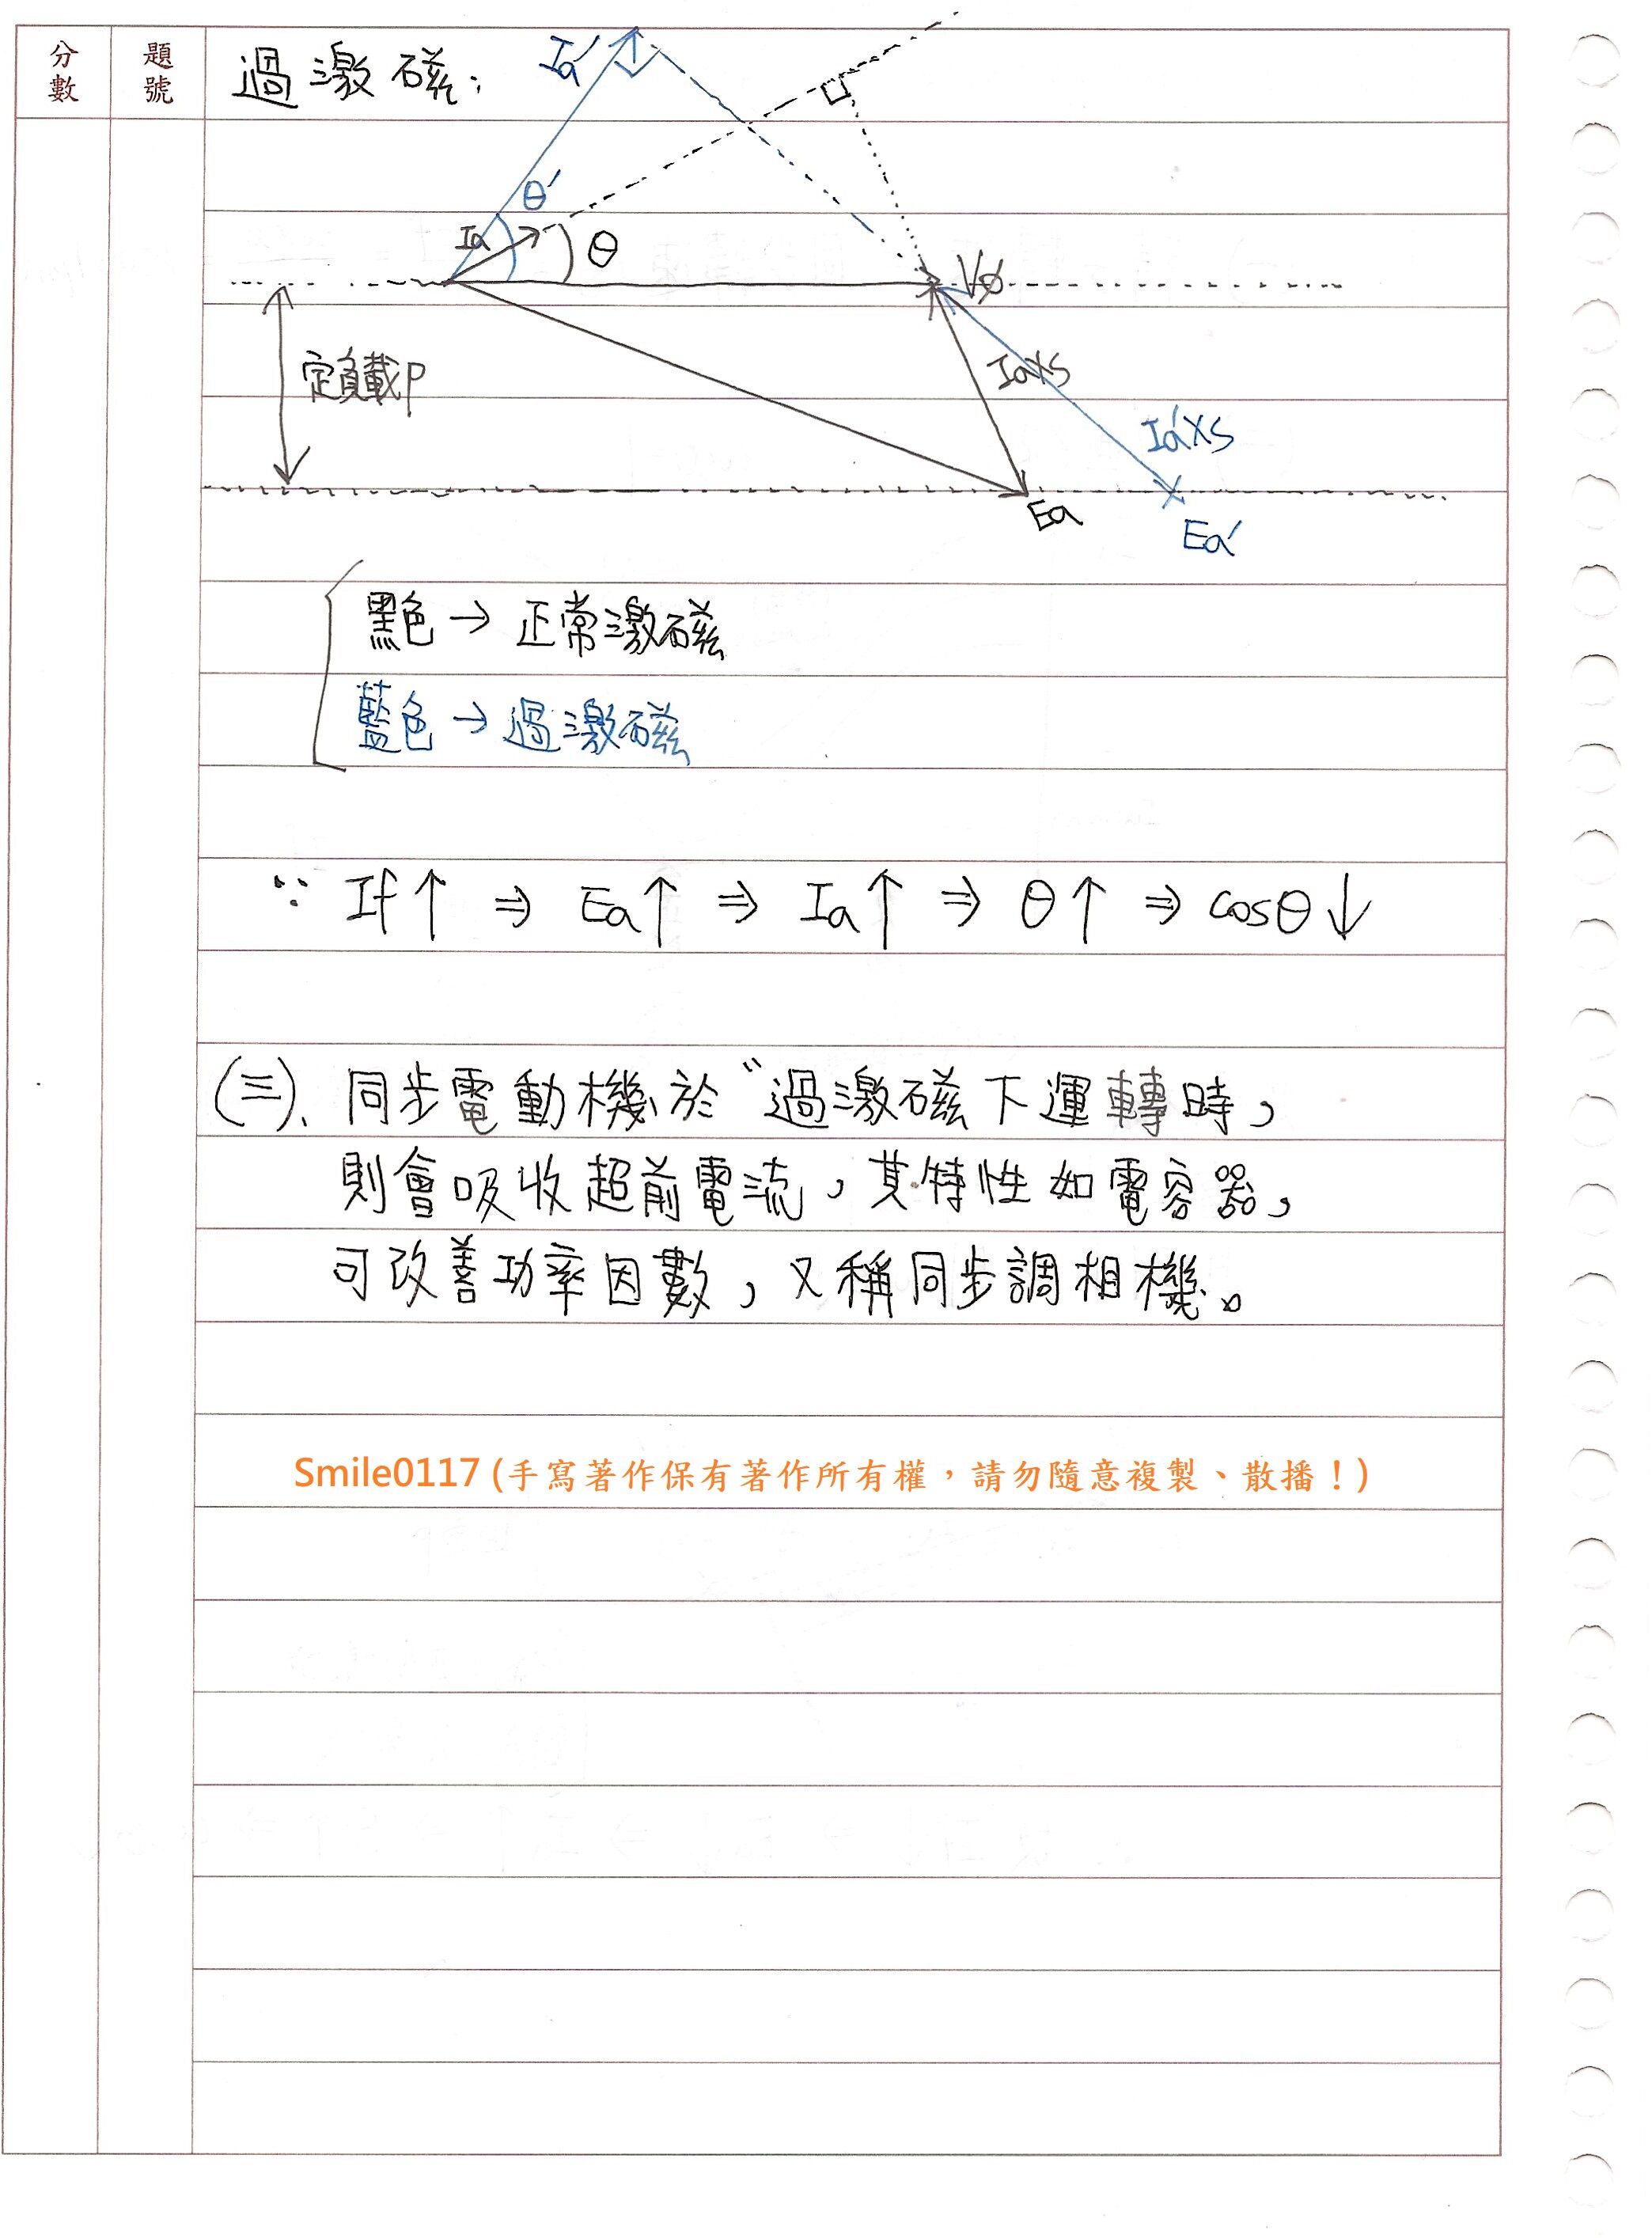 分數
題號
過激磁:
Ia'
θ'
Ia
θ
Vϕ
定負載P
IaXs
Ia'Xs
Ea
Ea'
黑色→正常激磁
藍色→過激磁
∵ If↑ ⇒ Ea↑ ⇒ Ia↑ ⇒ θ↑ ⇒ cosθ↓
(三)、同步電動機於〝過激磁下運轉時,
則會吸收超前電流,其特性如電容器,
可改善功率因數,又稱同步調相機。
Smile0117 (手寫著作保有著作所有權,請勿隨意複製、散播!)